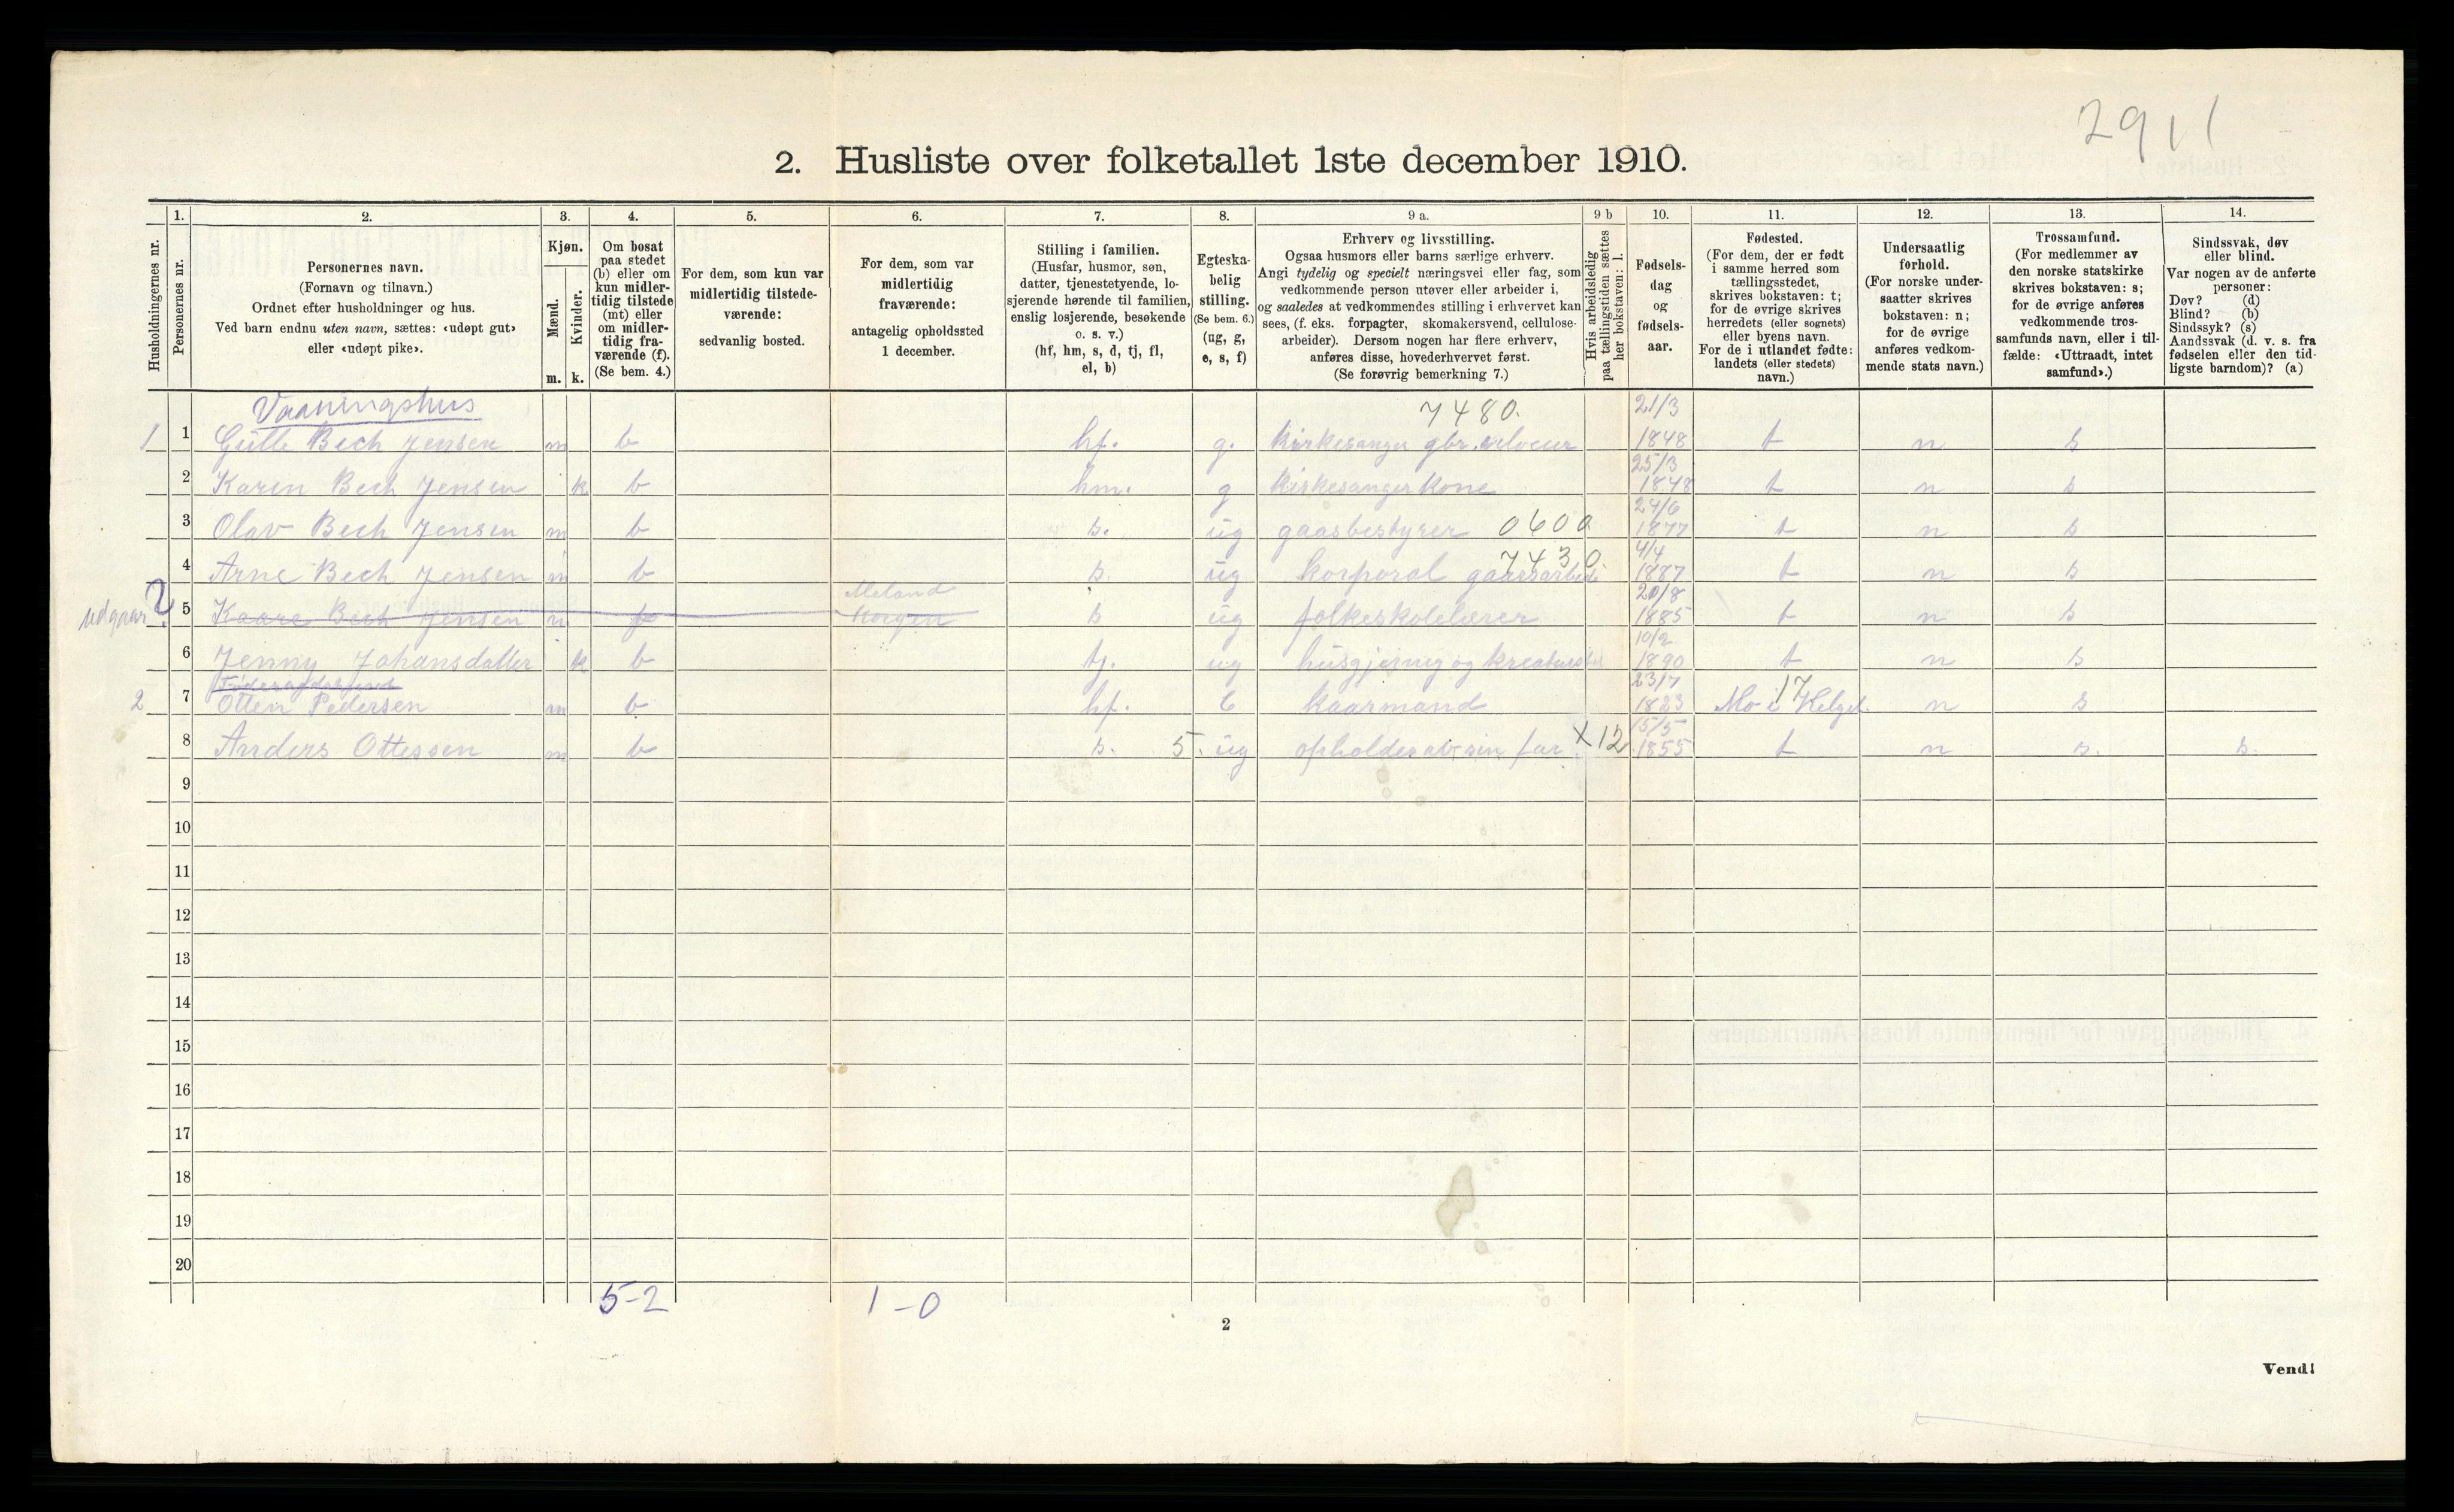 2911
2. Husliste over folketallet 1ste december 1910.
Husholdningernes nr.
1.
Personernes nr.
2.
Personernes navn.
(Fornavn og tilnavn.)
Ordnet efter husholdninger og hus.
Ved barn endnu uten navn, sættes: «udøpt gut»
eller «udøpt pike».
3.
Kjøn.
Mænd.
Kvinder.
m. k.
4.
Om bosat
paa stedet
(b) eller om
kun midler-
tidig tilstede
(mt) eller
om midler-
tidig fra-
værende (f).
(Se bem. 4.)
5.
For dem, som kun var
midlertidig tilstede-
værende:
sedvanlig bosted.
6.
For dem, som var
midlertidig
fraværende:
antagelig opholdssted
1 december.
7.
Stilling i familien.
(Husfar, husmor, søn,
datter, tjenestetyende, lo-
sjerende hørende til familien,
enslig losjerende, besøkende
o. s. v.)
(hf, hm, s, d, tj, fl,
el, b)
8.
Egteska-
belig
stilling.
(Se bem. 6.)
(ug, g,
e, s, f)
9 a.
Erhverv og livsstilling.
Ogsaa husmors eller barns særlige erhverv.
Angi tydelig og specielt næringsvei eller fag, som
vedkommende person utøver eller arbeider i,
og saaledes at vedkommendes stilling i erhvervet kan
sees, (f. eks. forpagter, skomakersvend, cellulose-
arbeider). Dersom nogen har flere erhverv,
anføres disse, hovederhvervet først.
(Se forøvrig bemerkning 7.)
9 b
Hvis arbeidsledig
paa tællingstiden sættes
her bokstaven: l.
10.
Fødsels-
dag
og
fødsels-
aar.
11.
Fødested.
(For dem, der er født
i samme herred som
tællingsstedet,
skrives bokstaven: t;
for de øvrige skrives
herredets (eller sognets)
eller byens navn.
For de i utlandet fødte:
landets (eller stedets)
navn.)
12.
Undersaatlig
forhold.
(For norske under-
saatter skrives
bokstaven: n;
for de øvrige
anføres vedkom-
mende stats navn.)
13.
Trossamfund.
(For medlemmer av
den norske statskirke
skrives bokstaven: s;
for de øvrige anføres
vedkommende tros-
samfunds navn, eller i til-
fælde: «Uttraadt, intet
samfund».)
14.
Sindssvak, døv
eller blind.
Var nogen av de anførte
personer:
Døv? (d)
Blind? (b)
Sindssyk? (s)
Aandssvak (d. v. s. fra
fødselen eller den tid-
ligste barndom)? (a)
Vaaningshus 7480. 21/3
1 1 Bech Jensen m b hf. g. kirkesanger gbr. 1848 t n s
25/3
2 Karen Bech Jensen k b hm. g kirkesanger kone 1848 t n s
24/6
3 Olav Bech Jensen m b s. ug gaasbestyrer 0600 1877 t n s
7430 4/4
4 Arne Bech Jensen m b s. ug korporal 1887 t n s
Meland 20/8
udgaar ? 5 Kaare Bech Jensen m f s ug folkeskolelærer 1885 t n s
10/2
6 Jenny Johansdatter k b tj. ug husgjerning og 1890 t n s
23/7 17
2 7 Otten Pedersen m b hf. e kaarmand 1823 Mo i Helgel. n s
15/5
8 Anders Ottessen m b s. 5. ug opholdes av sin far X12 1855 t n s. s.
9
10
11
12
13
14
15
16
17
18
19
20
5-2 1-0
2
Vend!